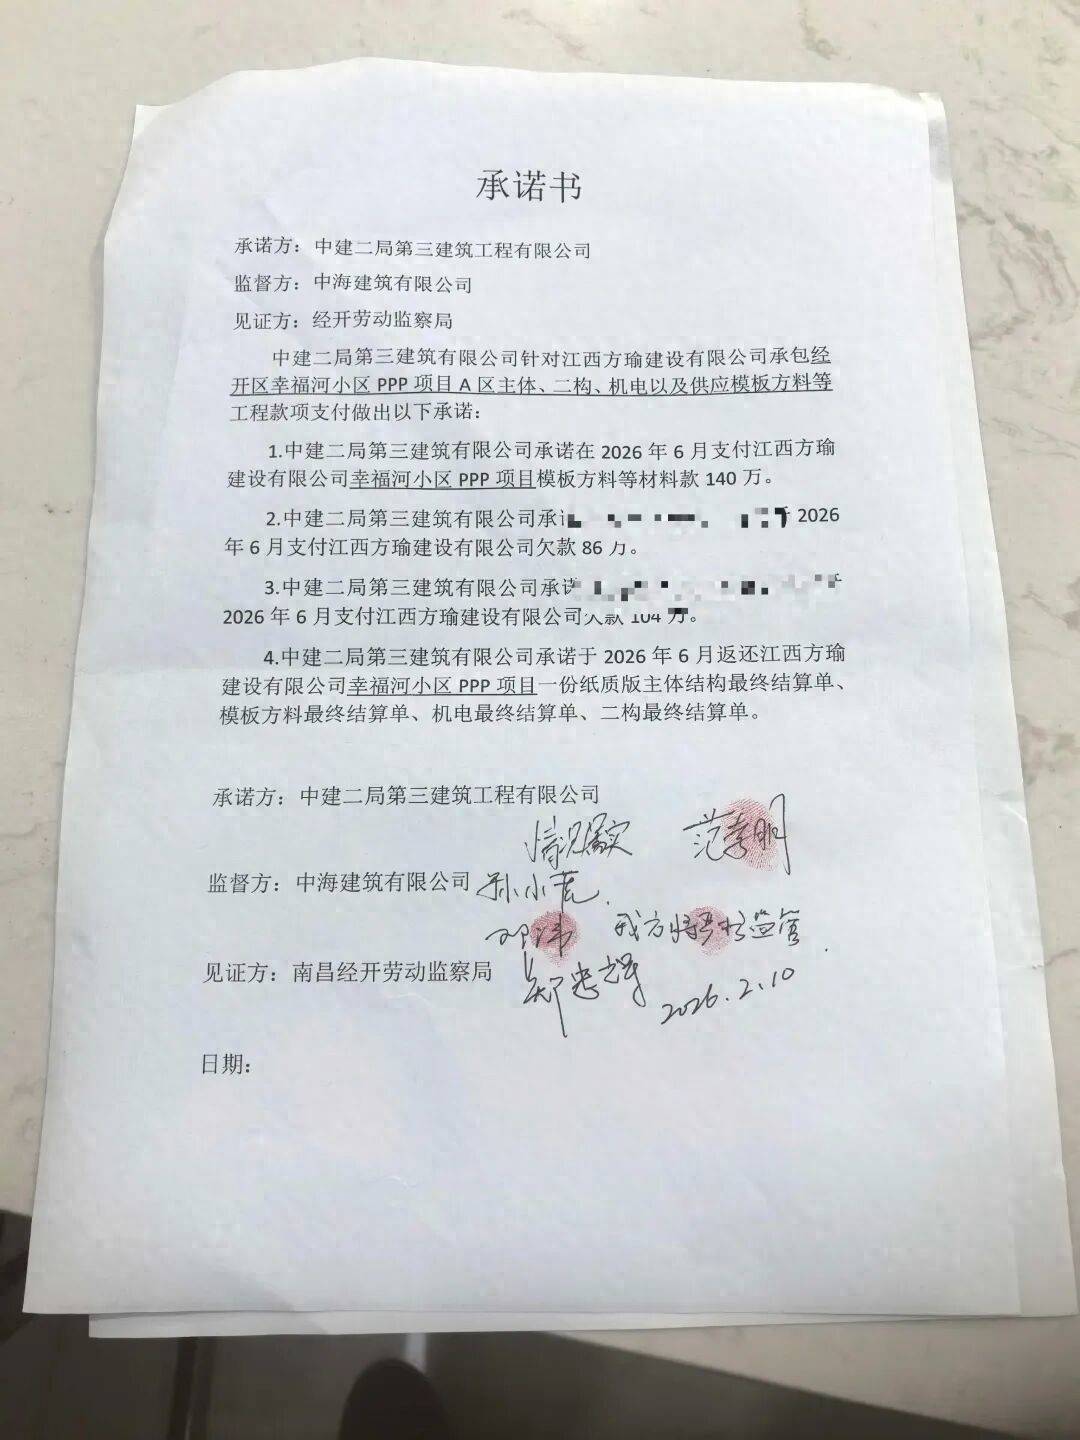 承诺书
承诺方：中建二局第三建筑工程有限公司
监督方：中海建筑有限公司
见证方：经开劳动监察局
中建二局第三建筑有限公司针对江西方瑜建设有限公司承包经
开区幸福河小区 PPP 项目 A 区主体、二构、机电以及供应模板方料等
工程款项支付做出以下承诺：
1.中建二局第三建筑有限公司承诺在 2026 年 6 月支付江西方瑜
建设有限公司幸福河小区 PPP 项目模板方料等材料款 140 万。
2.中建二局第三建筑有限公司承 2026
年 6 月支付江西方瑜建设有限公司欠款 86 万。
3.中建二局第三建筑有限公司承
2026 年 6 月支付江西方瑜建设有限公司欠款 104 万。
4.中建二局第三建筑有限公司承诺于 2026 年 6 月返还江西方瑜
建设有限公司幸福河小区 PPP 项目一份纸质版主体结构最终结算单、
模板方料最终结算单、机电最终结算单、二构最终结算单。
承诺方：中建二局第三建筑工程有限公司
情况属实 范孝明
监督方：中海建筑有限公司 孙小虎
邓沛 我方将严格监管
见证方：南昌经开劳动监察局 郑忠辉
2026.2.10
日期：